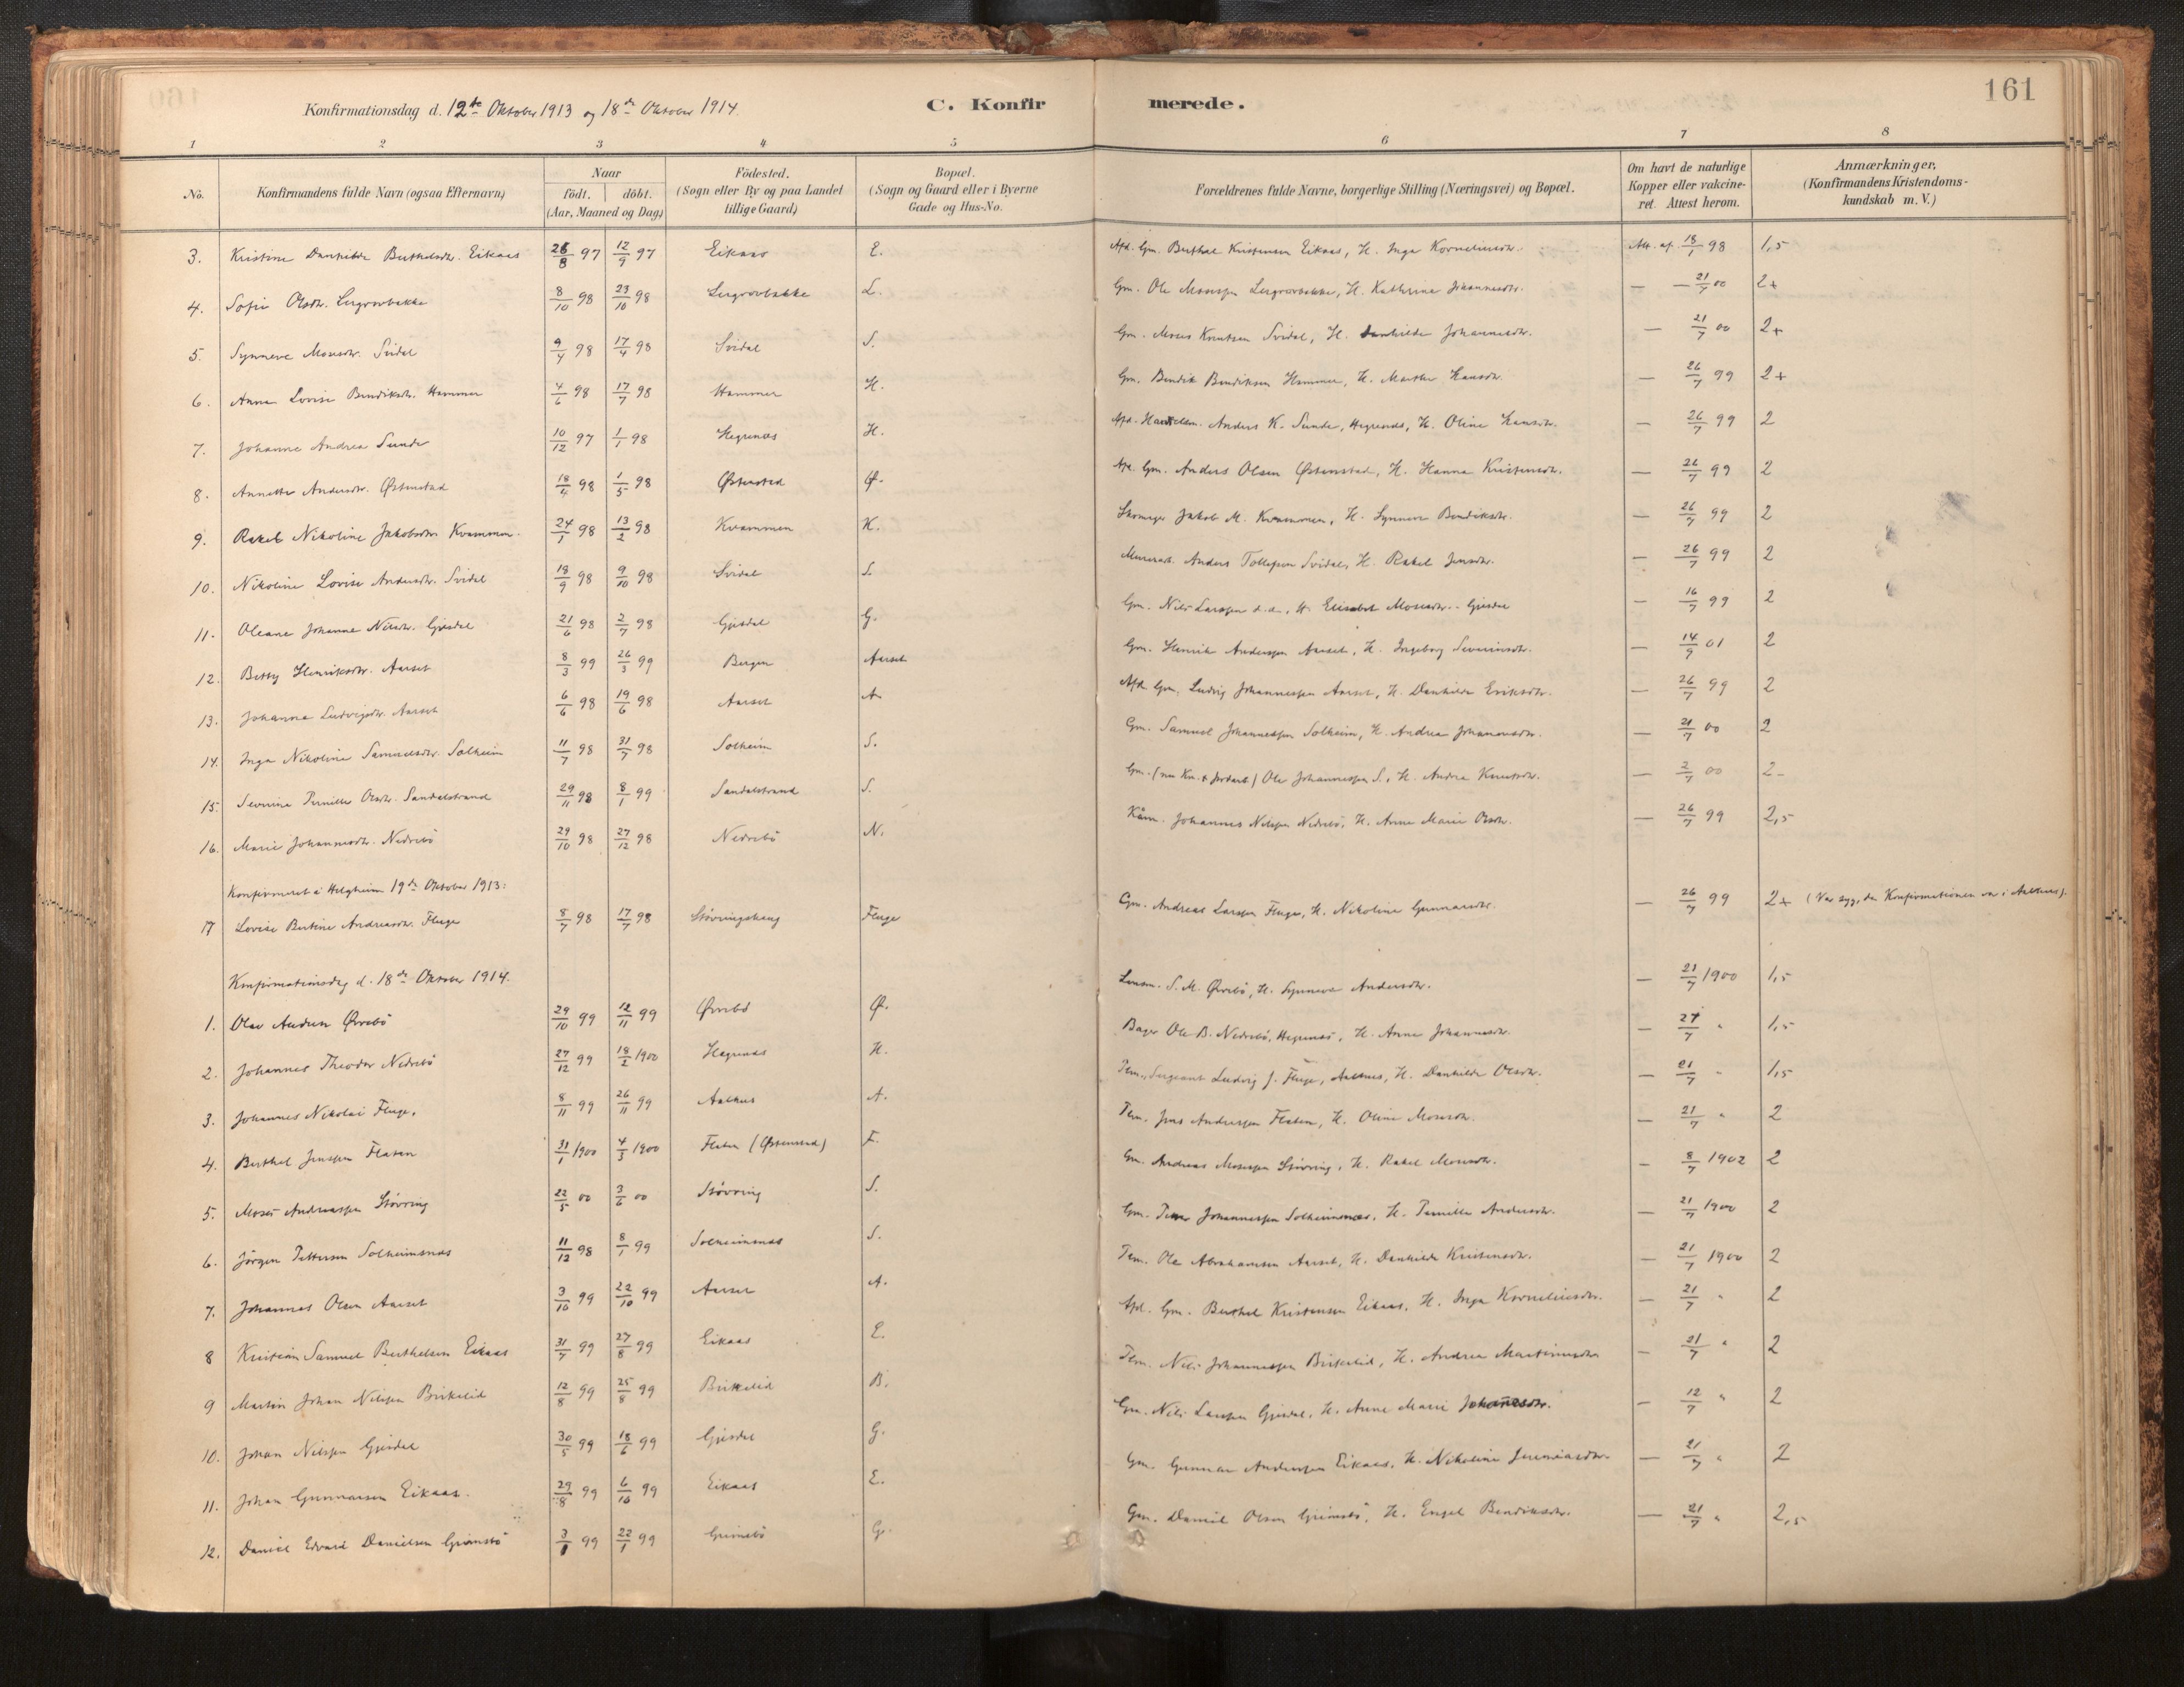 161
Konfirmationsdag d. 12te Oktober 1913 og 18de Oktober 1914.
C. Konfirmerede.
1 2 3 4 5 6 7 8
No. Konfirmandens fulde Navn (ogsaa Efternavn) Naar födt. döbt. (Aar, Maaned og Dag) Födested. (Sogn eller By og paa Landet tillige Gaard) Bopæl. (Sogn og Gaard eller i Byerne Gade og Hus-No. Forældrenes fulde Navne, borgerlige Stilling (Næringsvei) og Bopæl. Om havt de naturlige Kopper eller vakcineret. Attest herom. Anmærkninger. (Konfirmandens Kristendomskundskab m. V.)
3. Kristine Danhilda Berthelsdtr. Eikaas 28/8 97 12/9 97 Eikaas E. Afd. Gm. Berthel Kristensen Eikaas, H. Inga Korneliusdtr. Att. af 18/1 98 1,5
4. Sofie Olsdtr. Lergrovbakke 8/10 98 23/10 98 Lergrovbakke L. Gm. Ole Mosessen Lergrovbakke, H. Kathrine Johannesdtr. — — 21/7 00 2+
5. Synneve Mosesdtr. Svidal 9/4 98 17/4 98 Svidal S. Gm. Moses Knutsen Svidal, H. Danhilde Johannesdtr. — 21/7 00 2+
6. Anna Lovise Bendiksdtr. Hammer 4/6 98 17/7 98 Hammer H. Gm. Bendik Bendiksen Hammer, H. Marthe Hansdtr. — 26/7 99 2+
7. Johanne Andrea Sunde 10/12 97 1/1 98 Hegrenæs H. Afd. Handelsm. Anders K. Sunde, Hegrenæs, H. Oline Hansdtr. — 26/7 99 2
8. Annette Andersdtr. Østenstad 18/4 98 1/5 98 Østenstad Ø. Afd. Gm. Anders Olsen Østenstad, H. Hanna Kristensdtr. — 26/7 99 2
9. Rakel Nikoline Jakobsdtr. Kvammen. 24/1 98 13/2 98 Kvammen K. Skomager Jakob M. Kvammen, H. Synneve Bendiksdtr. — 26/7 99 2
10. Nikoline Lovise Andersdtr. Svidal 18/9 98 9/10 98 Svidal S. Murerarb. Anders Tollefsen Svidal, H. Rakel Jensdtr. — 26/7 99 2
11. Oleane Johanne Nilsdtr. Gjesdal 21/6 98 2/7 98 Gjesdal G. Gm. Nils Larssen d.a., H. Elisabet Mosesdtr. Gjesdal — 16/7 99 2
12. Betty Henriksdtr. Aarset 8/3 99 26/3 99 Bergen Aarset Gm. Henrik Anderssen Aarset, H. Ingeborg Severinsdtr. — 14/9 01 2
13. Johanna Ludvigsdtr. Aarset 6/6 98 19/6 98 Aarset A. Afd. Gm. Ludvig Johannessen Aarset, H. Danhilde Eriksdtr. — 26/7 99 2
14. Inga Nikoline Samuelsdtr. Solheim 11/7 98 31/7 98 Solheim S. Gm. Samuel Johannessen Solheim, H. Andrea Johannesdtr. — 21/7 00 2
15. Severine Pernille Olsdtr. Sandalstrand 29/11 98 8/1 99 Sandalstrand S. Gm. (nu Kn. & Jordarb) Ole Johannessen S., H. Andrea Knutsdtr. — 2/7 00 2-
16. Marie Johannesdtr. Nedrebö 29/10 98 27/12 98 Nedrebö N. Kårm. Johannes Nilssen Nedrebö, H. Anne Marie Olsdtr. — 26/7 99 2,5
Konfirmeret i Helgheim 19de Oktober 1913:
17 Lovise Bertine Andreasdtr. Fluge 8/7 98 17/7 98 Støvringshaug Fluge Gm. Andreas Larssen Fluge, H. Nikoline Gunnarsdtr. — 26/7 99 2+ (Var syg, da Konfirmationen var i Aalhus).
Konfirmationsdag d. 18de Oktober 1914.
1. Olav Andreas Øvrebö 29/10 99 12/11 99 Øvrebö Ø. Lensm. S. M. Øvrebö, H. Synneve Andersdtr. — 21/7 1900 1,5
2. Johannes Theodor Nedrebö 27/12 99 18/2 1900 Hegrenæs H. Bager Ole B. Nedrebö, Hegrenæs, H. Anne Johannesdtr. — 27/7 " 1,5
3. Johannes Nikolai Fluge. 8/11 99 26/11 99 Aalhus A. Plm., Sergeant Ludvig J. Fluge, Aalhus, H. Danhilde Olsdtr. — 21/7 " 1,5
4. Berthel Jenssen Flaten 31/1 1900 4/3 1900 Flaten (Østenstad) F. Plm. Jens Anderssen Flaten, H. Oline Mosesdtr. — 21/7 " 2
5. Moses Andreassen Støvring 22/5 00 3/6 00 Støvring S. Gm. Andreas Mosessen Støvring, H. Rakel Mosesdtr. — 8/7 1902 2
6. Jörgen Pettersen Solheimsnæs 11/12 98 8/1 99 Solheimsnæs S. Gm. Peter Johannessen Solheimsnæs, H. Pernille Andersdtr. — 21/7 1900 2
7. Johannes Olsen Aarset 3/10 99 22/10 99 Aarset A. Plm. Ole Abrahamsen Aarset, H. Danhilde Kristensdtr. — 21/7 1900 2
8 Kristian Samuel Berthelsen Eikaas 31/7 99 27/8 99 Eikaas E. Afd. Gm. Berthel Kristensen Eikaas, H. Inga Korneliusdtr. — 21/7 " 2
9 Martin Johan Nilssen Birkelid 12/8 99 25/8 99 Birkelid B. Plm. Nils Johannessen Birkelid, H. Andrea Martinusdtr — 21/7 " 2
10. Johan Nilssen Gjesdal 30/5 99 18/6 99 Gjesdal G. Gm. Nils Larssen Gjesdal, H. Anne Marie Johannesdtr. — 12/7 " 2
11. Johan Gunnarsen Eikaas. 29/8 99 6/10 99 Eikaas E. Gm. Gunnar Anderssen Eikaas, H. Nikoline Jeremiasdtr. — 21/7 " 2
12. Daniel Edvard Danielsen Grimsbö 3/1 99 22/1 99 Grimsbö G. Gm. Daniel Olsen Grimsbö, H. Engel Bendiksdtr. — 21/7 " 2,5